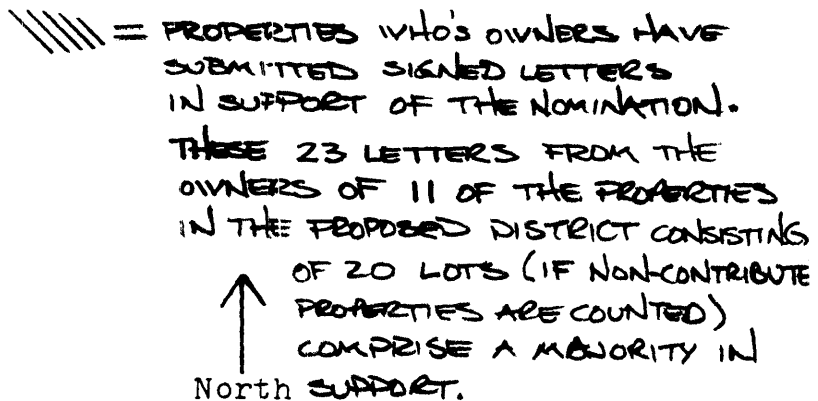 = PROPERTIES WHO'S OWNERS HAVE
SUBMITTED SIGNED LETTERS
IN SUPPORT OF THE NOMINATION.
THESE 23 LETTERS FROM THE
OWNERS OF 11 OF THE PROPERTIES
IN THE PROPOSED DISTRICT CONSISTING
OF 20 LOTS (IF NON-CONTRIBUTE
PROPERTIES ARE COUNTED)
COMPRISE A MAJORITY IN
North SUPPORT.